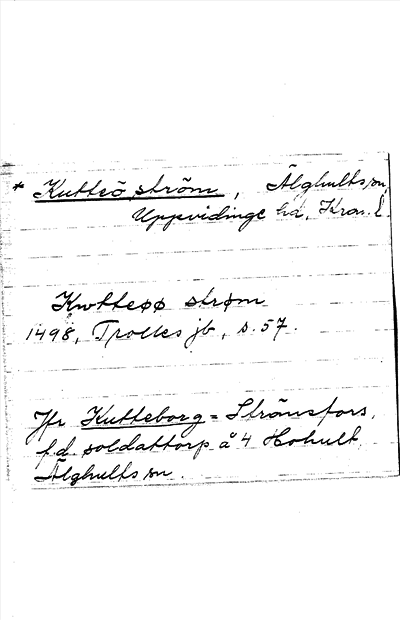 * Kutteö ström, Älghults sn,
Uppvidinge hd, Kron. l.
Kwtteøø strøm
1498, Trolles jb, s. 57.
Jfr Kutteborg = Strånsfors,
f.d. soldattorp å 4 Hohult,
Älghults sn.